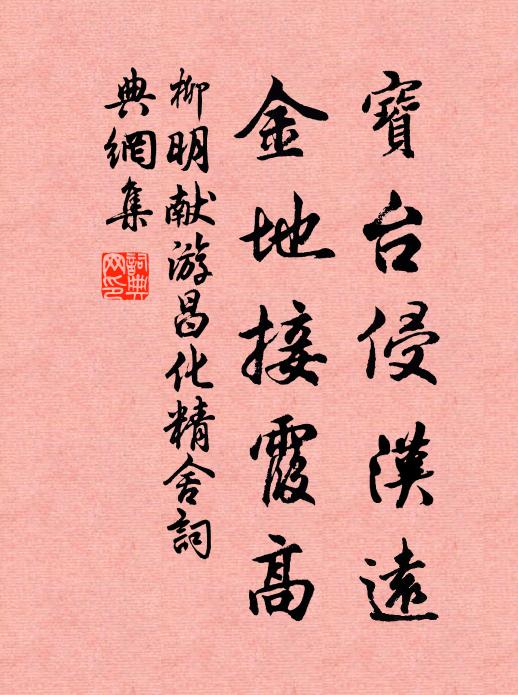 寶台侵漢遠
金地接霞高
柳明献游昌化精舍詞
典網集
詞典网印